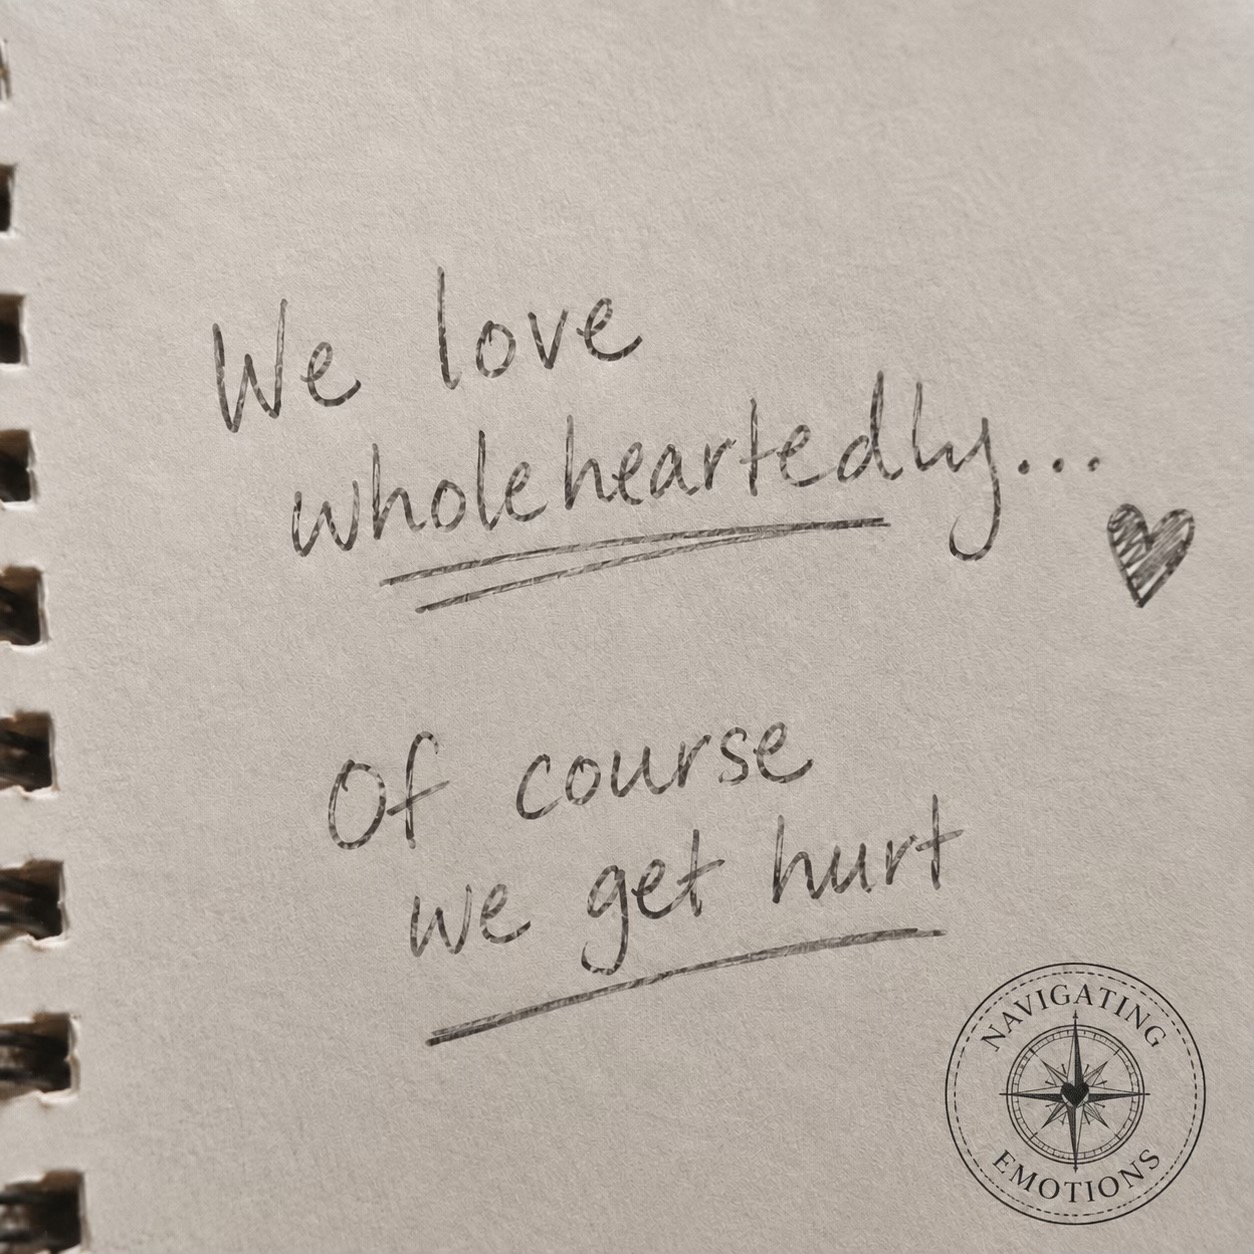 We love
wholeheartedly...
Of course
we get hurt
NAVIGATING
EMOTIONS